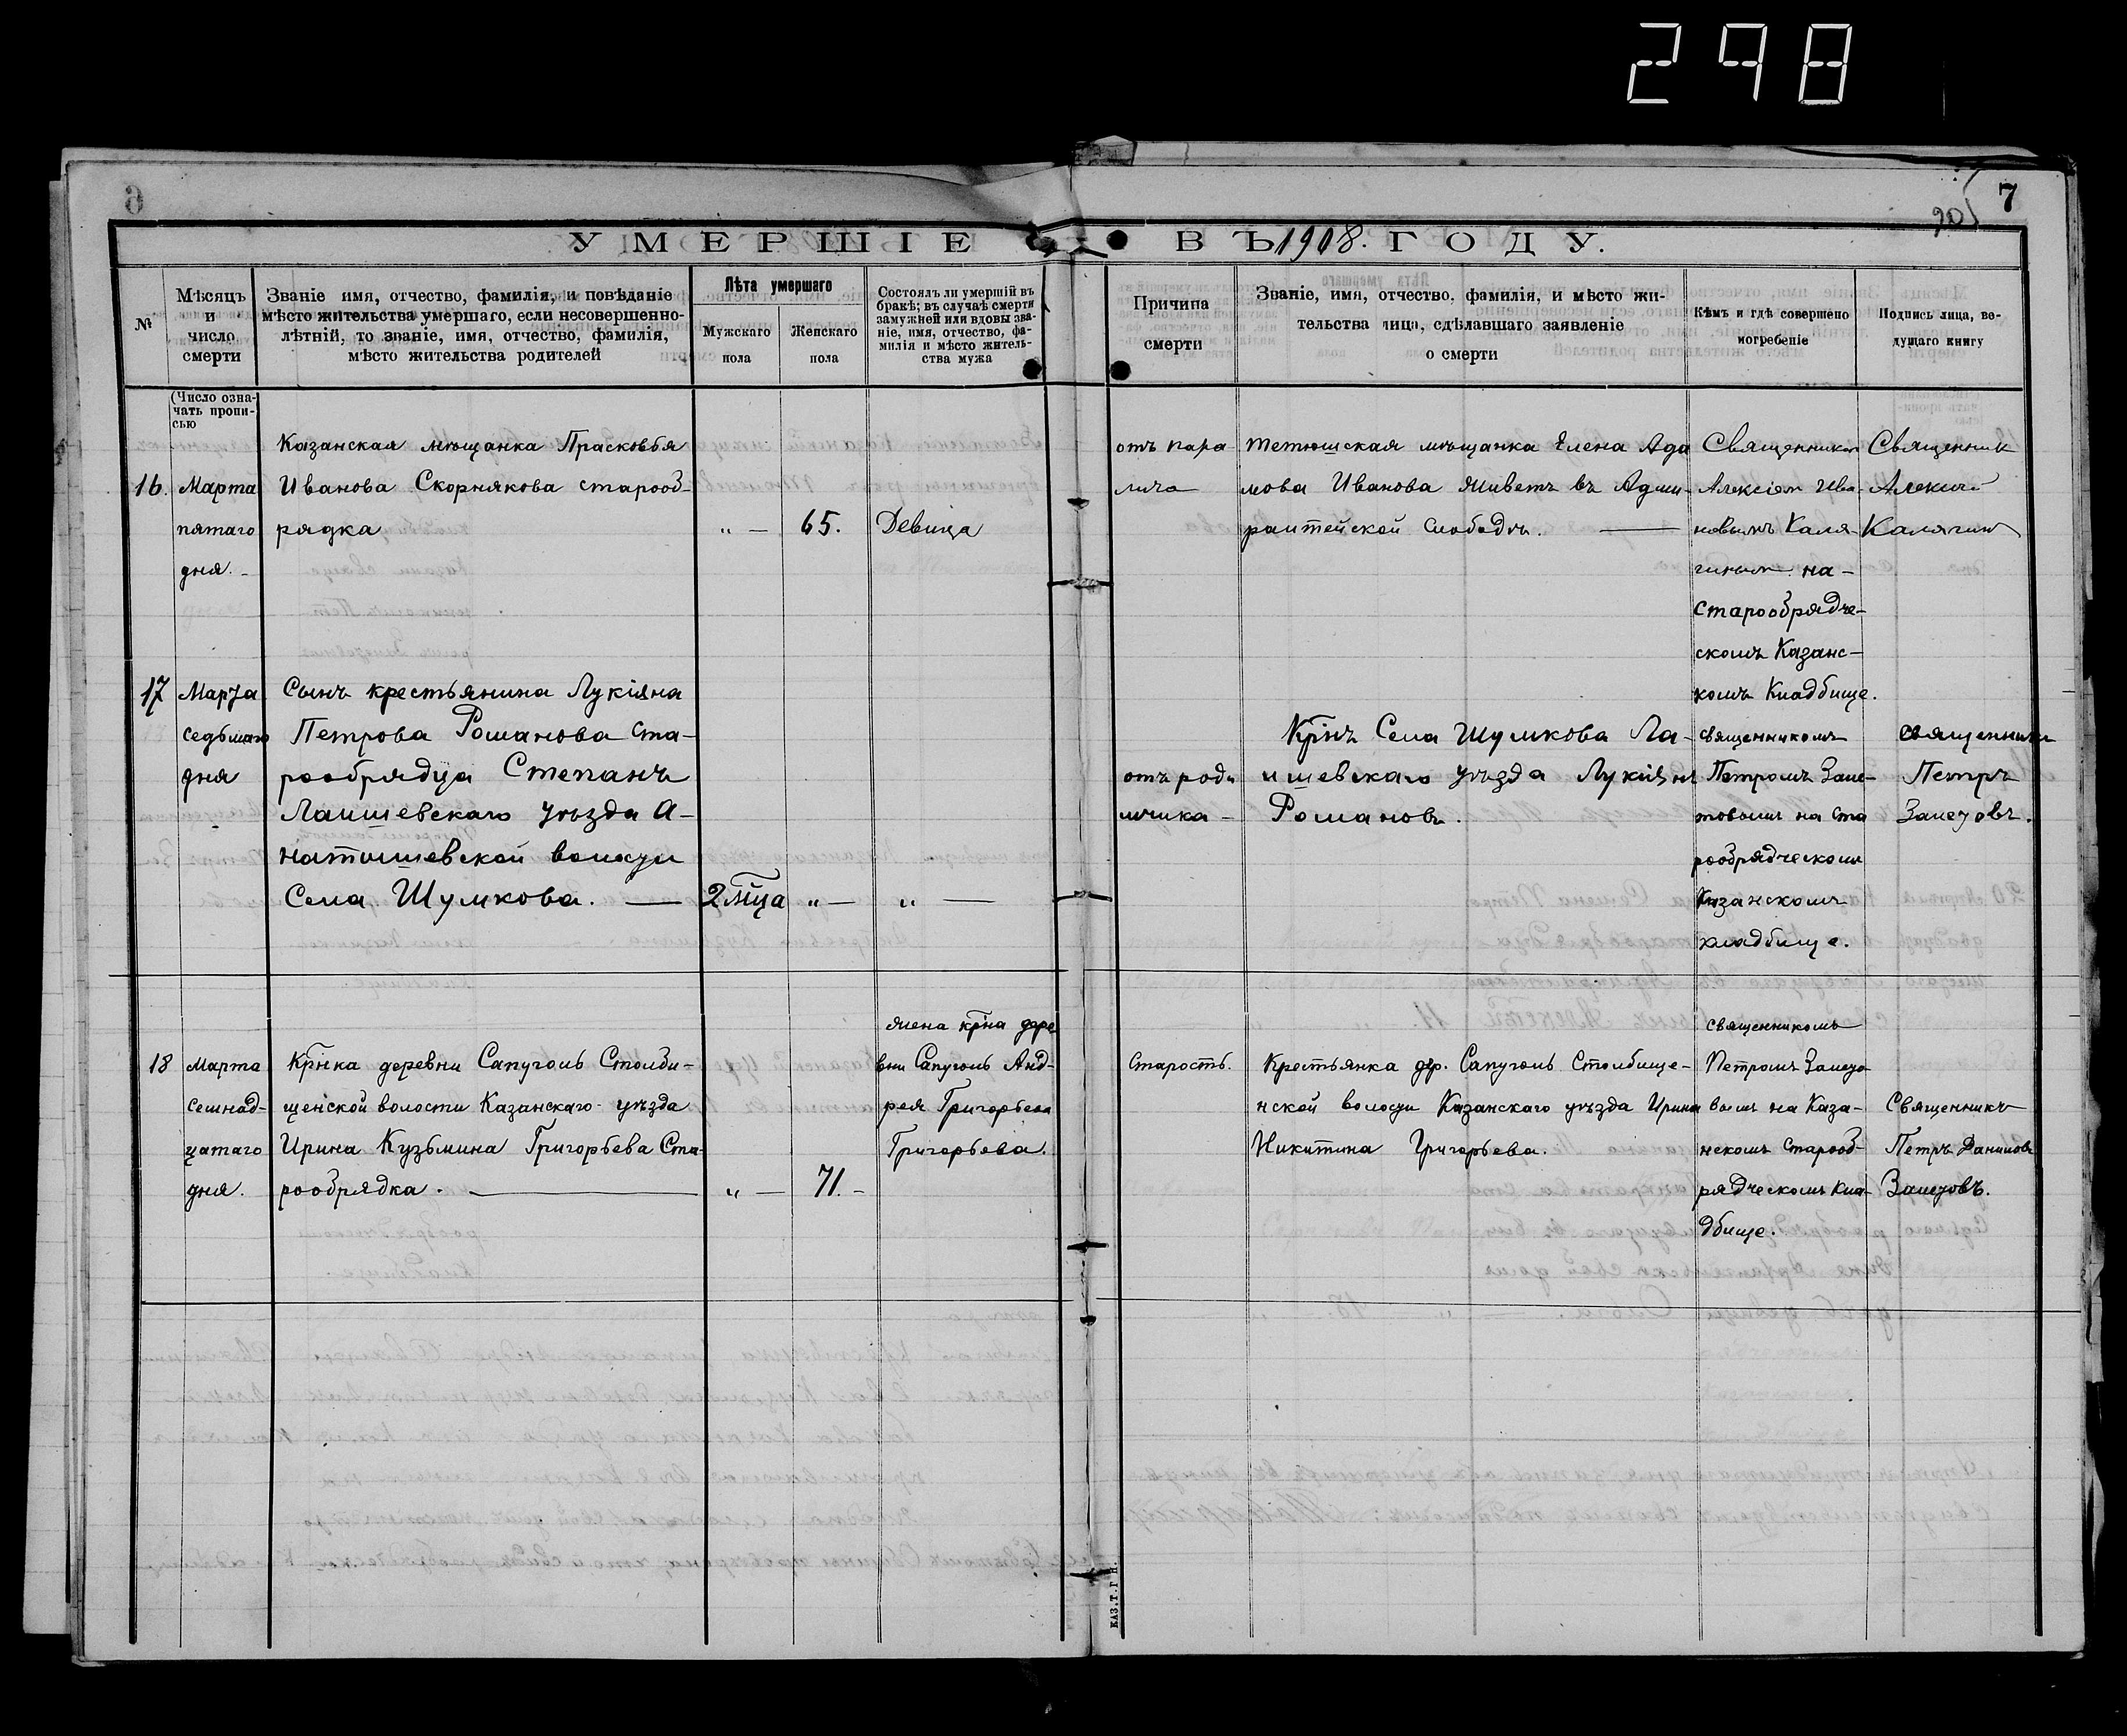 298
7
УМЕРШІЕ ВЪ 1908. ГОДУ.
№
Мѣсяцъ
и
число
смерти
Званіе имя, отчество, фамилія, и повѣданіе
мѣсто жительства умершаго, если несовершенно-
лѣтній, то званіе, имя, отчество, фамилія,
мѣсто жительства родителей
Лѣта умершаго
Мужскаго
пола
Женскаго
пола
Состоялъ ли умершій въ
бракѣ; въ случаѣ смерти
замужней или вдовы зва-
ніе, имя, отчество, фа-
милія и мѣсто житель-
ства мужа
Причина
смерти
Званіе, имя, отчество, фамилія, и мѣсто жи-
тельства лица, сдѣлавшаго заявленіе
о смерти
Кѣмъ и гдѣ совершено
погребеніе
Подпись лица, ве-
дущаго книгу
(Число озна-
чать пропи-
сью
16.
Марта
пятаго
дня.
Казанская мѣщанка Прасковья
Иванова Скорнякова старооб-
рядка
„ —
65.
Девица
отъ пара
лича
Тетюшская мѣщанка Елена Ада
мова Иванова живетъ въ Адми-
ралтейской Слободѣ.
Священникомъ
Алексіем Ива-
новымъ Каля-
гинымъ на-
Старообрядче-
скомъ Казанс-
комъ Кладбище.
Священник
Алексій
Калягин
17
Марта
седьмаго
дня
Сынъ крестьянина Лукіяна
Петрова Романова Ста-
рообрядца Степанъ
Лаишевскаго уѣзда А-
натышевской волости
Села Шумкова. —
2 мца
„ —
„ —
отъ роди
мчика -
Крнъ Села Шумкова Ла-
ишевскаго уѣзда Лукіянъ
Романовъ.
священникомъ
Петромъ Зале-
товымъ на Ста
рообрядческомъ
Казанскомъ
кладбище.
священникъ
Петръ
Залетовъ.
18
Марта
семнад-
цатаго
дня.
Крнка деревни Сапуголь Столби-
щенской волости Казанскаго уѣзда
Ирина Кузьмина Григорьева Ста-
рообрядка. —
„ —
71. -
жена крна дере
вни Сапуголь Анд-
рея Григорьева
Григорьева.
Старость.
Крестьянка др. Сапуголь Столбище-
нской волости Казанскаго уѣзда Ирина
Никитина Григорьева.
священникомъ
Петромъ Залето-
вымъ на Каза-
нскомъ Старооб-
рядческомъ Кла-
дбище.
Священникъ
Петръ Даниловъ
Залетовъ.
КАЗ.Т.Г П.